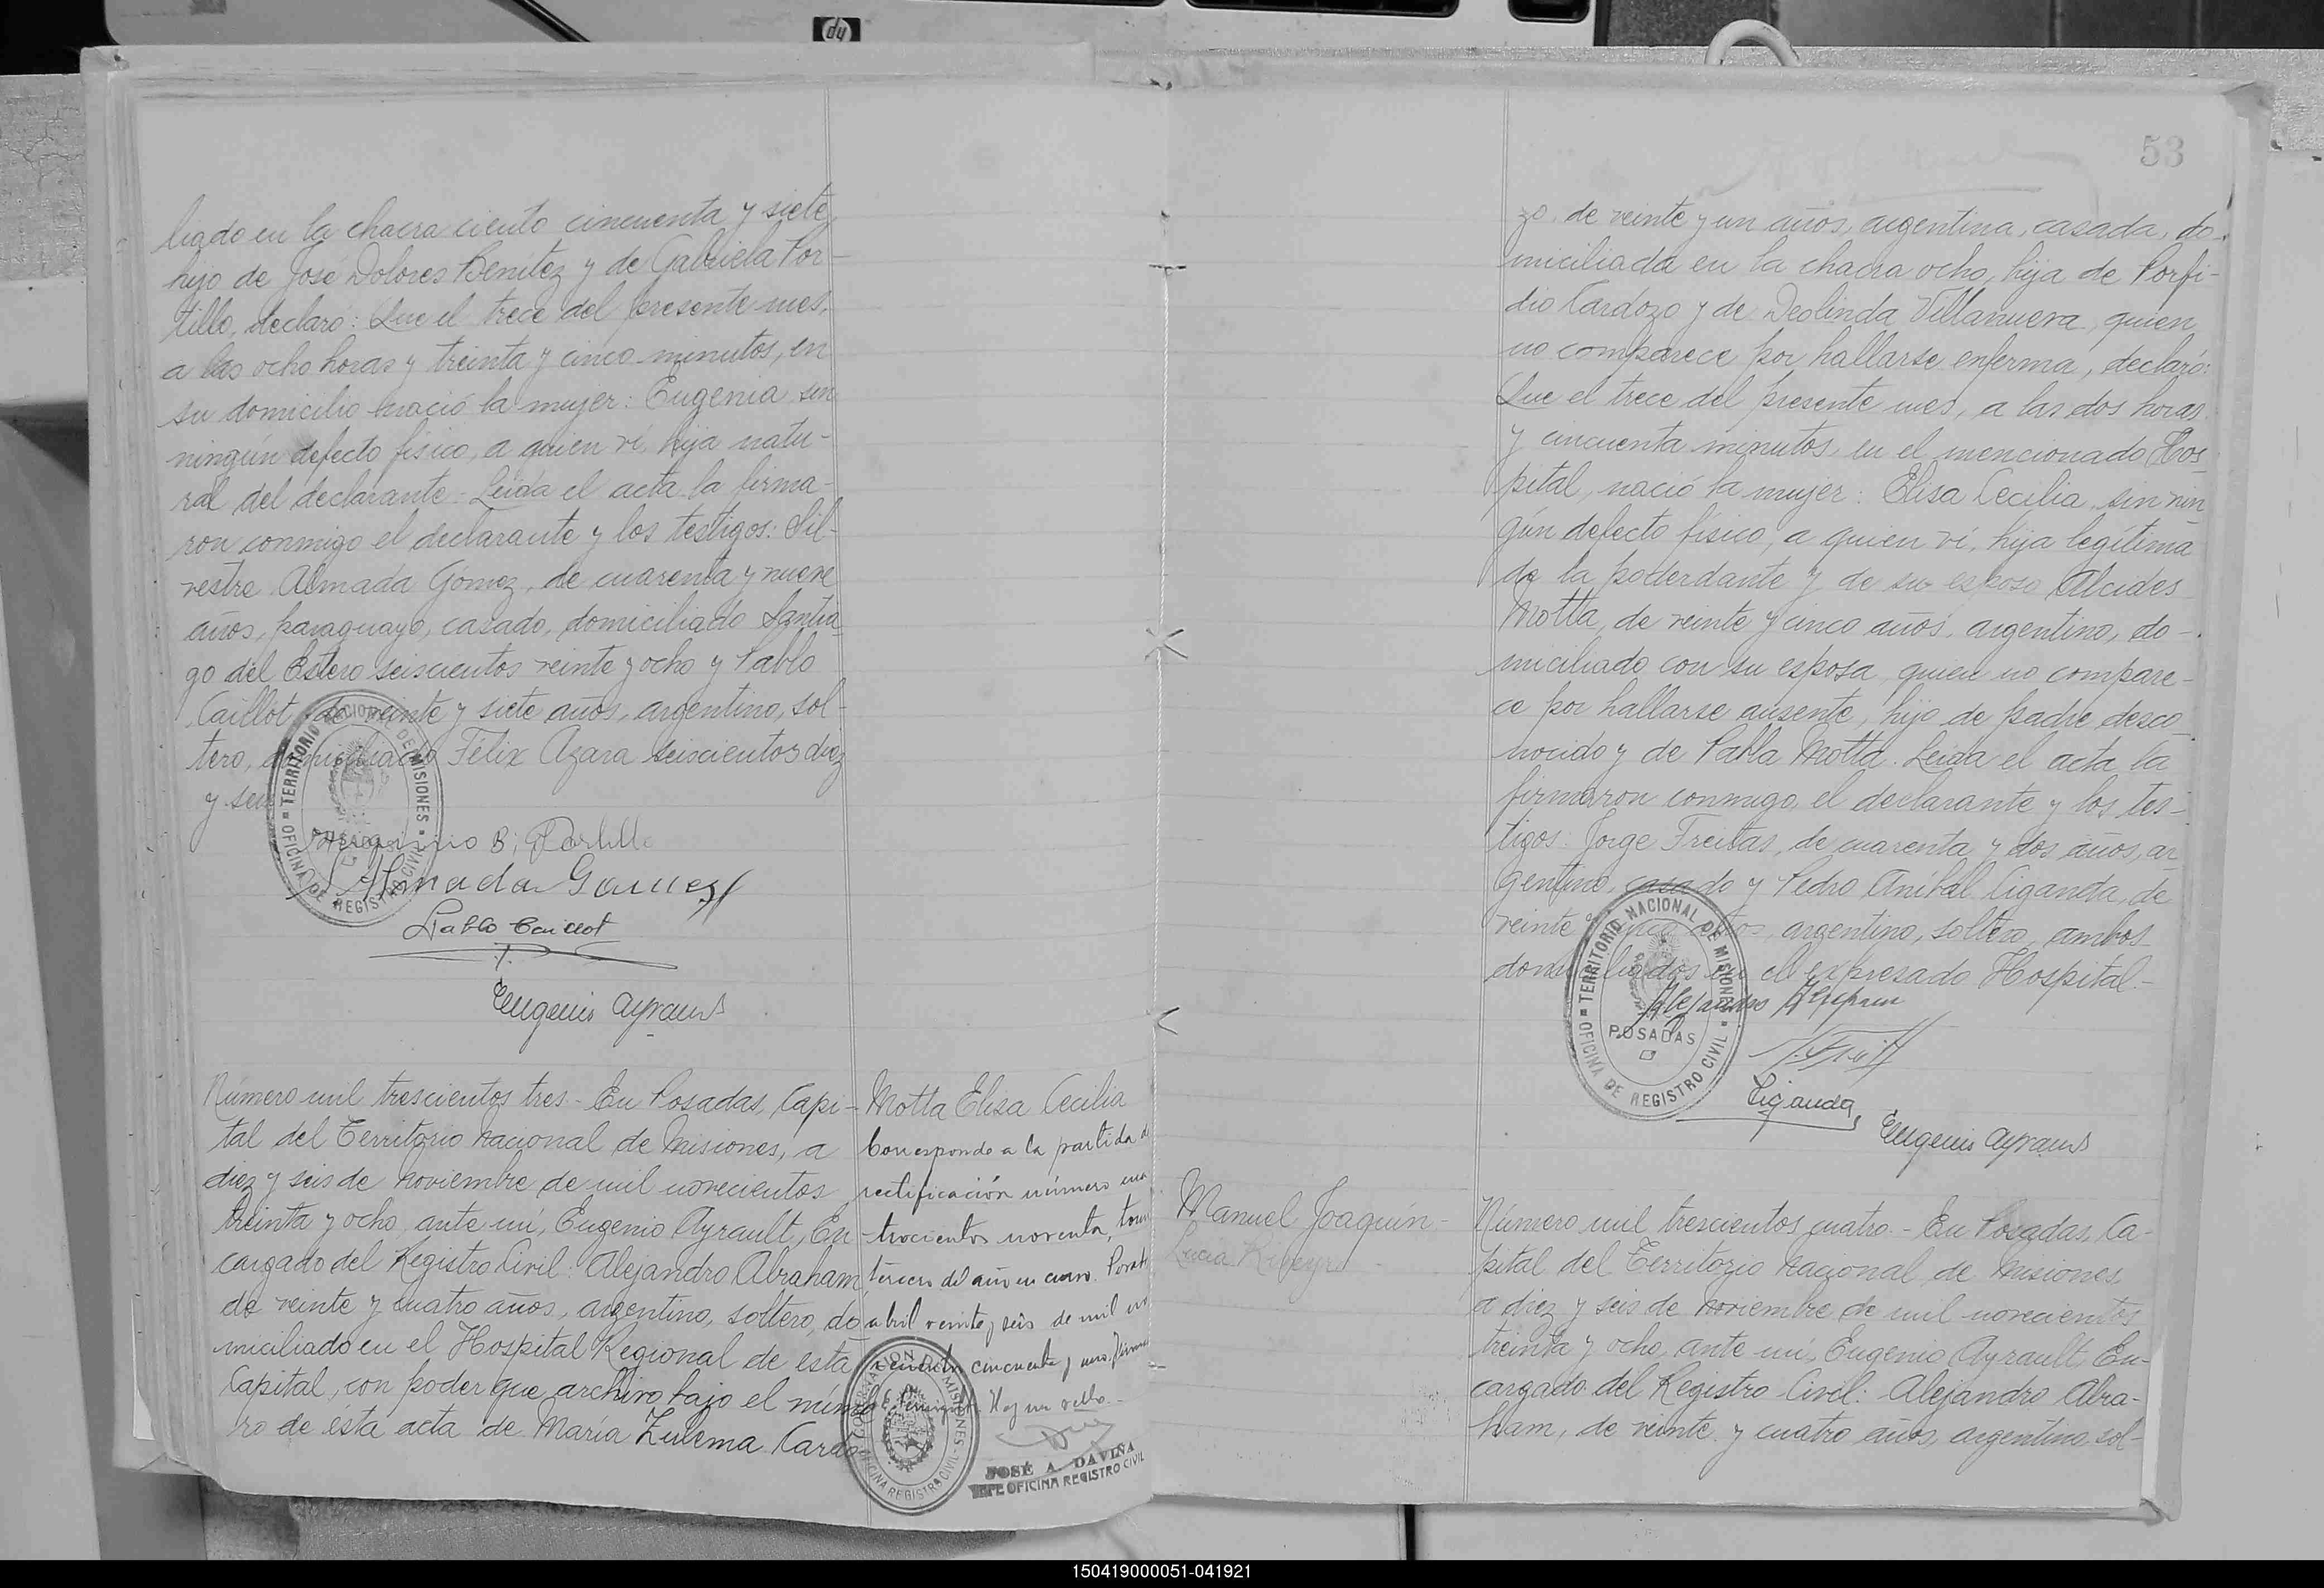 liado en la chacra ciento cincuenta y siete,
hijo de José Dolores Benítez y de Gabriela Por-
tillo, declaró: Que el trece del presente mes,
a las ocho horas y treinta y cinco minutos, en
su domicilio nació la mujer: Eugenia sin
ningún defecto físico, a quien ví, hija natu-
ral del declarante. Leída el acta la firma-
ron conmigo el declarante y los testigos: Sil-
vestre Almada Gómez, de cuarenta y nueve
años, paraguayo, casado, domiciliado Santia-
go del Estero seiscientos veinte y ocho y Pablo
Caillot, de veinte y siete años, argentino, sol-
tero, domiciliado Félix Azara seiscientos diez
y seis
TERRITORIO NACIONAL DE MISIONES
OFICINA DE REGISTRO CIVIL
B. Portillo
Almada Gomez
Pablo Caillot
Eugenio Ayrault
Número mil trescientos tres.- En Posadas, Capi-
tal del Territorio Nacional de Misiones, a
diez y seis de Noviembre de mil novecientos
treinta y ocho, ante mí, Eugenio Ayrault, En-
cargado del Registro Civil: Alejandro Abraham,
de veinte y cuatro años, argentino, soltero, do-
miciliado en el Hospital Regional de esta
Capital, con poder que archivo bajo el núme-
ro de ésta acta de María Zulema Cardo-
Motta Elisa Cecilia
Corresponde a la partida de
rectificación número cua
trocientos noventa, tomo
tercero del año en curso. Posadas
abril veinte y seis de mil no
vecientos cincuenta y uno.
Hay un sello.-
GOBERNACION DE MISIONES
OFICINA REGISTRO CIVIL
JOSÉ A. DAVIÑA
JEFE OFICINA REGISTRO CIVIL
53
zo, de veinte y un años, argentina, casada, do-
miciliada en la chacra ocho, hija de Porfi-
dio Cardozo y de Deolinda Villanueva, quien
no comparece por hallarse enferma, declaró:
Que el trece del presente mes, a las dos horas
y cincuenta minutos, en el mencionado Hos-
pital, nació la mujer: Elisa Cecilia, sin nin-
gún defecto físico, a quien ví, hija legítima
de la poderdante y de su esposo Alcides
Motta, de veinte y cinco años, argentino, do-
miciliado con su esposa, quien no compare-
ce por hallarse ausente, hijo de padre desco-
nocido y de Pabla Motta. Leída el acta la
firmaron conmigo, el declarante y los tes-
tigos: Jorge Freitas, de cuarenta y dos años, ar-
gentino, casado y Pedro Aníbal Ciganda, de
veinte y cinco años, argentino, soltero, ambos
domiciliados en el expresado Hospital.-
TERRITORIO NACIONAL DE MISIONES
POSADAS
OFICINA DE REGISTRO CIVIL
Alejandro Abraham
Ciganda
Eugenio Ayrault
Manuel Joaquín-
Lucia
Número mil trescientos cuatro.- En Posadas, Ca-
pital del Territorio Nacional de Misiones,
a diez y seis de Noviembre de mil novecientos
treinta y ocho, ante mí, Eugenio Ayrault, En-
cargado del Registro Civil: Alejandro Abra-
ham, de veinte y cuatro años, argentino, sol-
hp
150419000051-041921